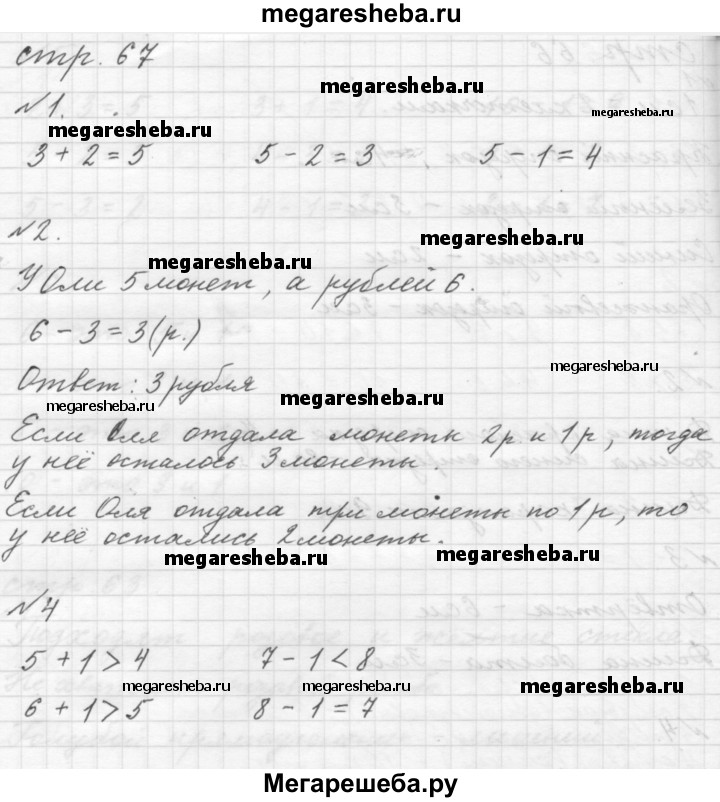 megaresheba.ru
стр. 67
megaresheba.ru
№1.
megaresheba.ru
megaresheba.ru
3 + 2 = 5 5 - 2 = 3 5 - 1 = 4
№2.
megaresheba.ru
megaresheba.ru
У Оли 5 монет, а рублей 6.
6 - 3 = 3 (р.)
megaresheba.ru
Ответ: 3 рубля
megaresheba.ru
megaresheba.ru
Если Оля отдала монеты 2р и 1р, тогда
у неё осталось 3 монеты
Если Оля отдала три монеты по 1р, то
у неё остались 2 монеты.
megaresheba.ru
megaresheba.ru
№4
5 + 1 > 4 7 - 1 < 8
megaresheba.ru megaresheba.ru megaresheba.ru
6 + 1 > 5 8 - 1 = 7
Мегарешеба.ру